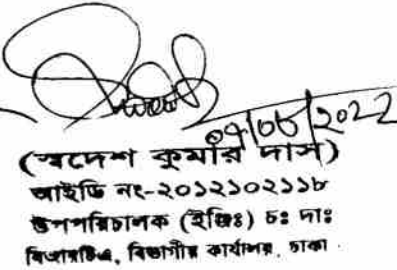 ০৭/০৮/২০২২
(স্বদেশ কুমার দাস)
আইডি নং-২০১২১০২১১৮
উপপরিচালক (ইঞ্জিঃ) চঃ দাঃ
বিআরটিএ, বিভাগীয় কার্যালয়, ঢাকা